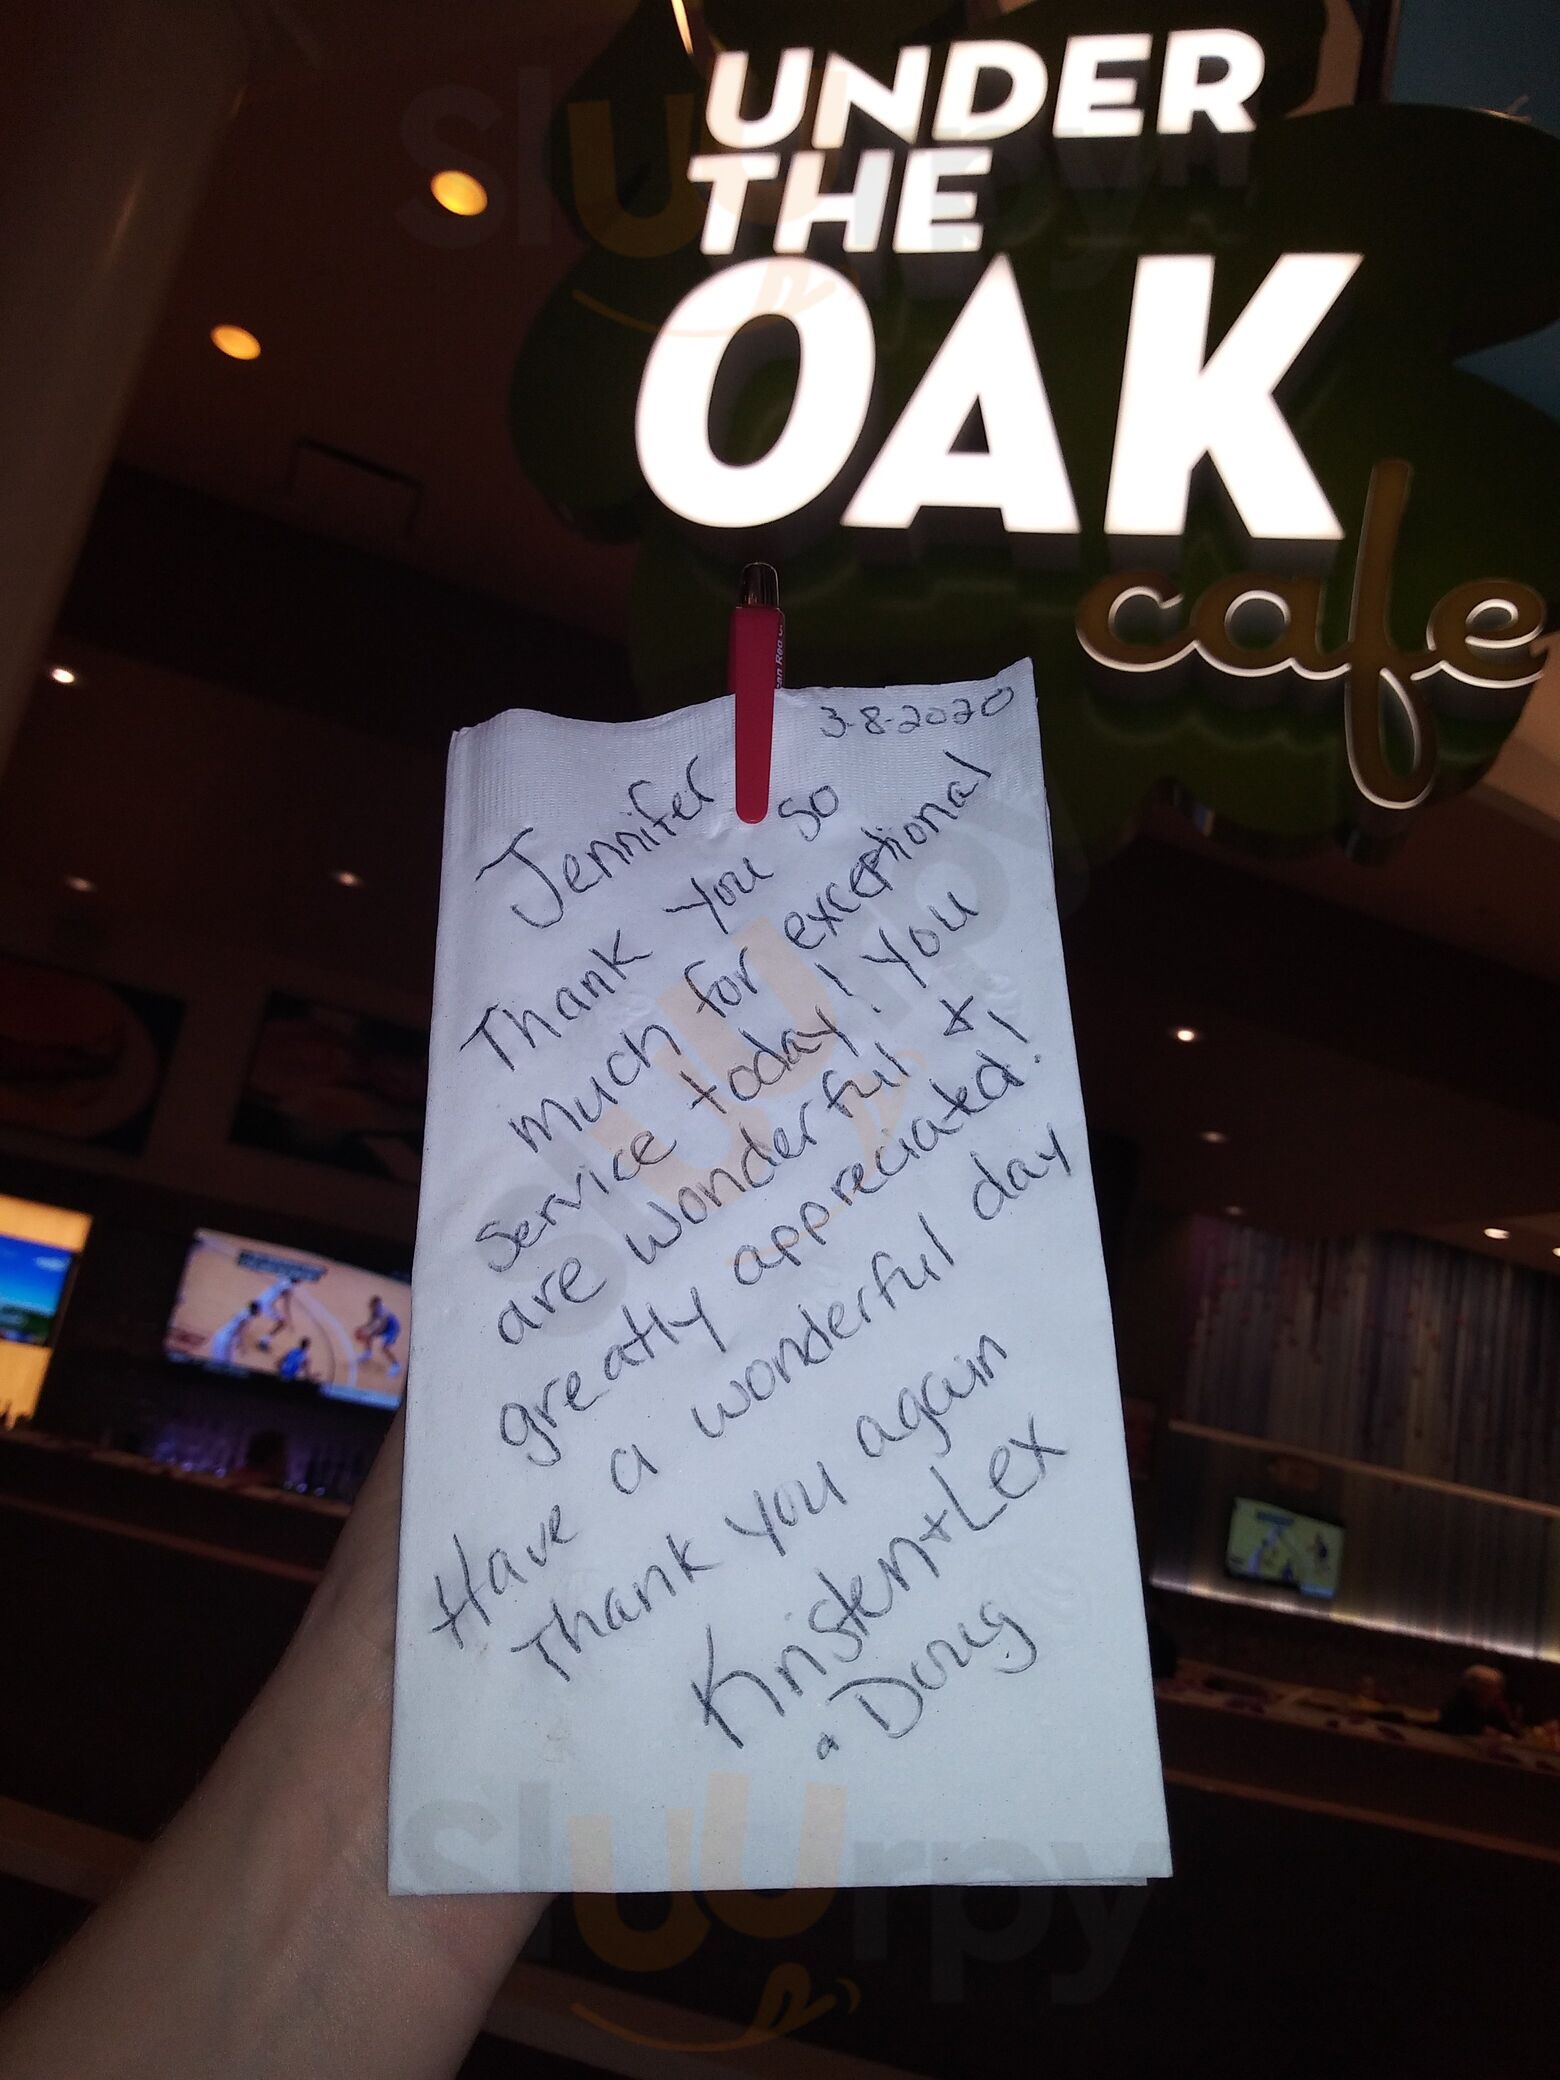 UNDER
THE
OAK
cafe
3-8-2020
Jennifer
Thank you so
much for exceptional
service today! You
are wonderful &
greatly appreciated!
Have a wonderful day
Thank you again
Kristen + Lex
a Doug
sluurpy
sluurpy
sluurpy
sluurpy